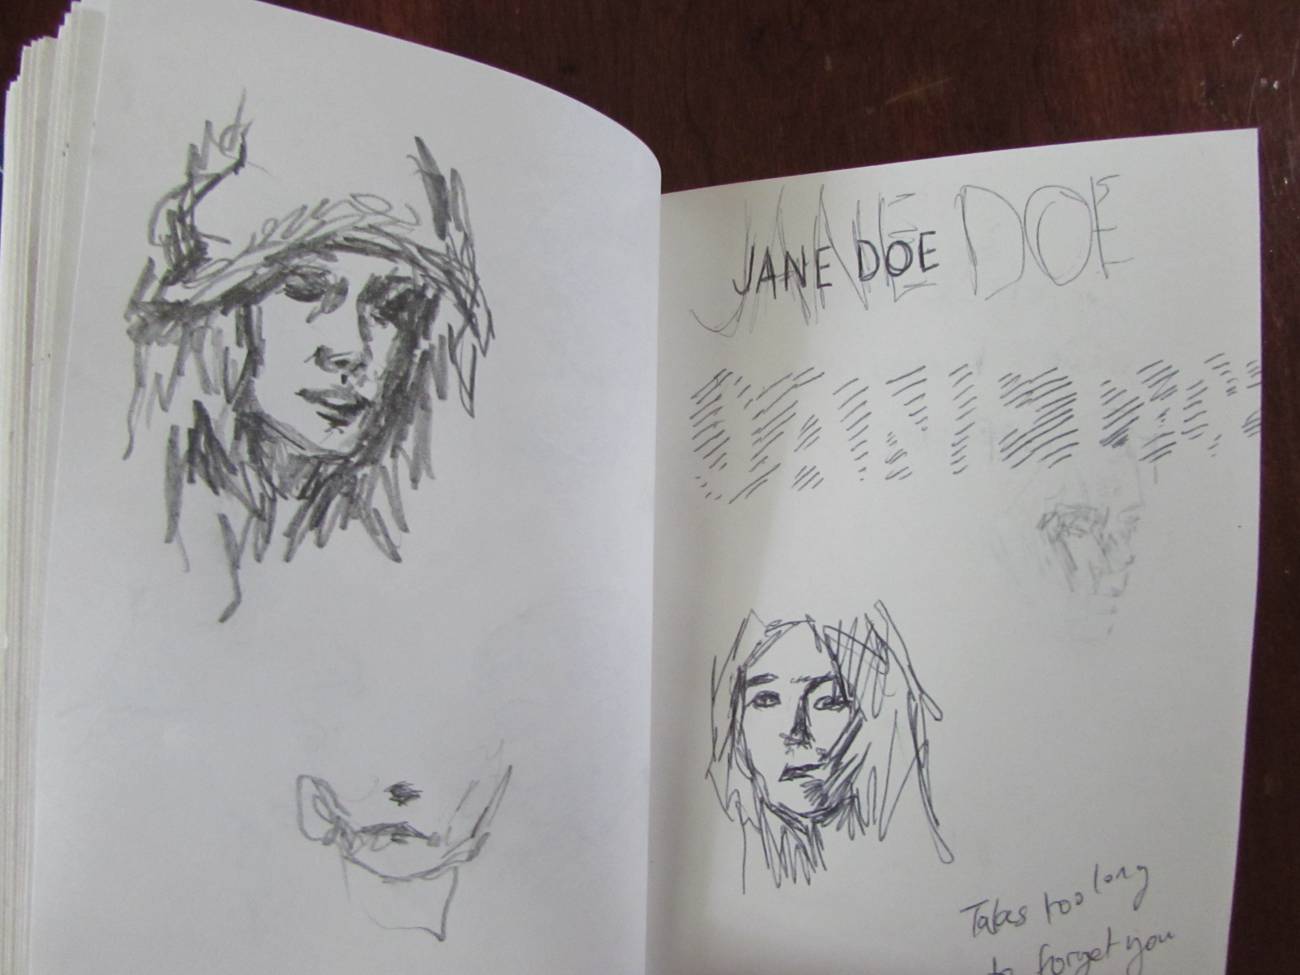 JANE DOE
JANE DOE
Takes too long
to forget you